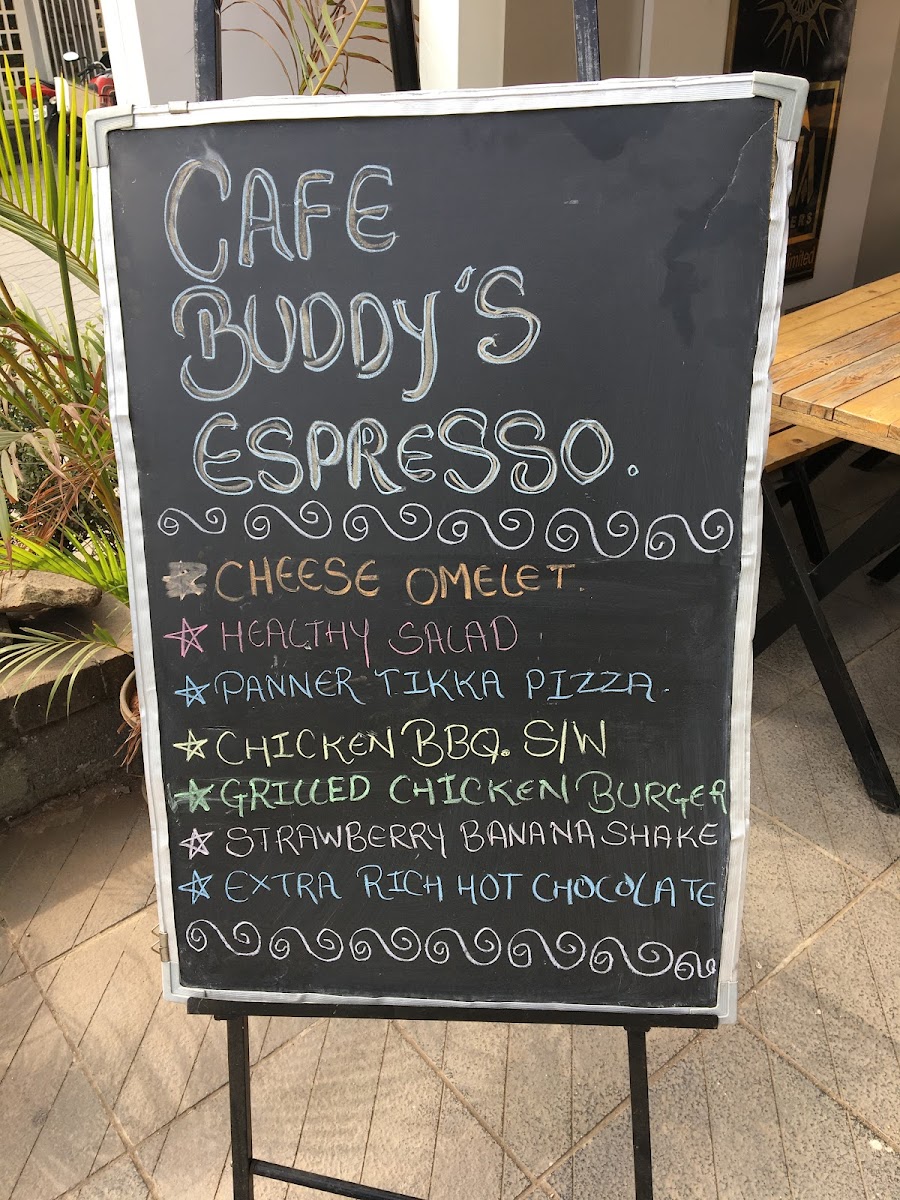 CAFE
BUDDY'S
ESPRESSO.
CHEESE OMELET
HEALTHY SALAD
PANNER TIKKA PIZZA.
CHICKEN BBQ. S/W
GRILLED CHICKEN BURGER
STRAWBERRY BANANA SHAKE
EXTRA RICH HOT CHOCOLATE